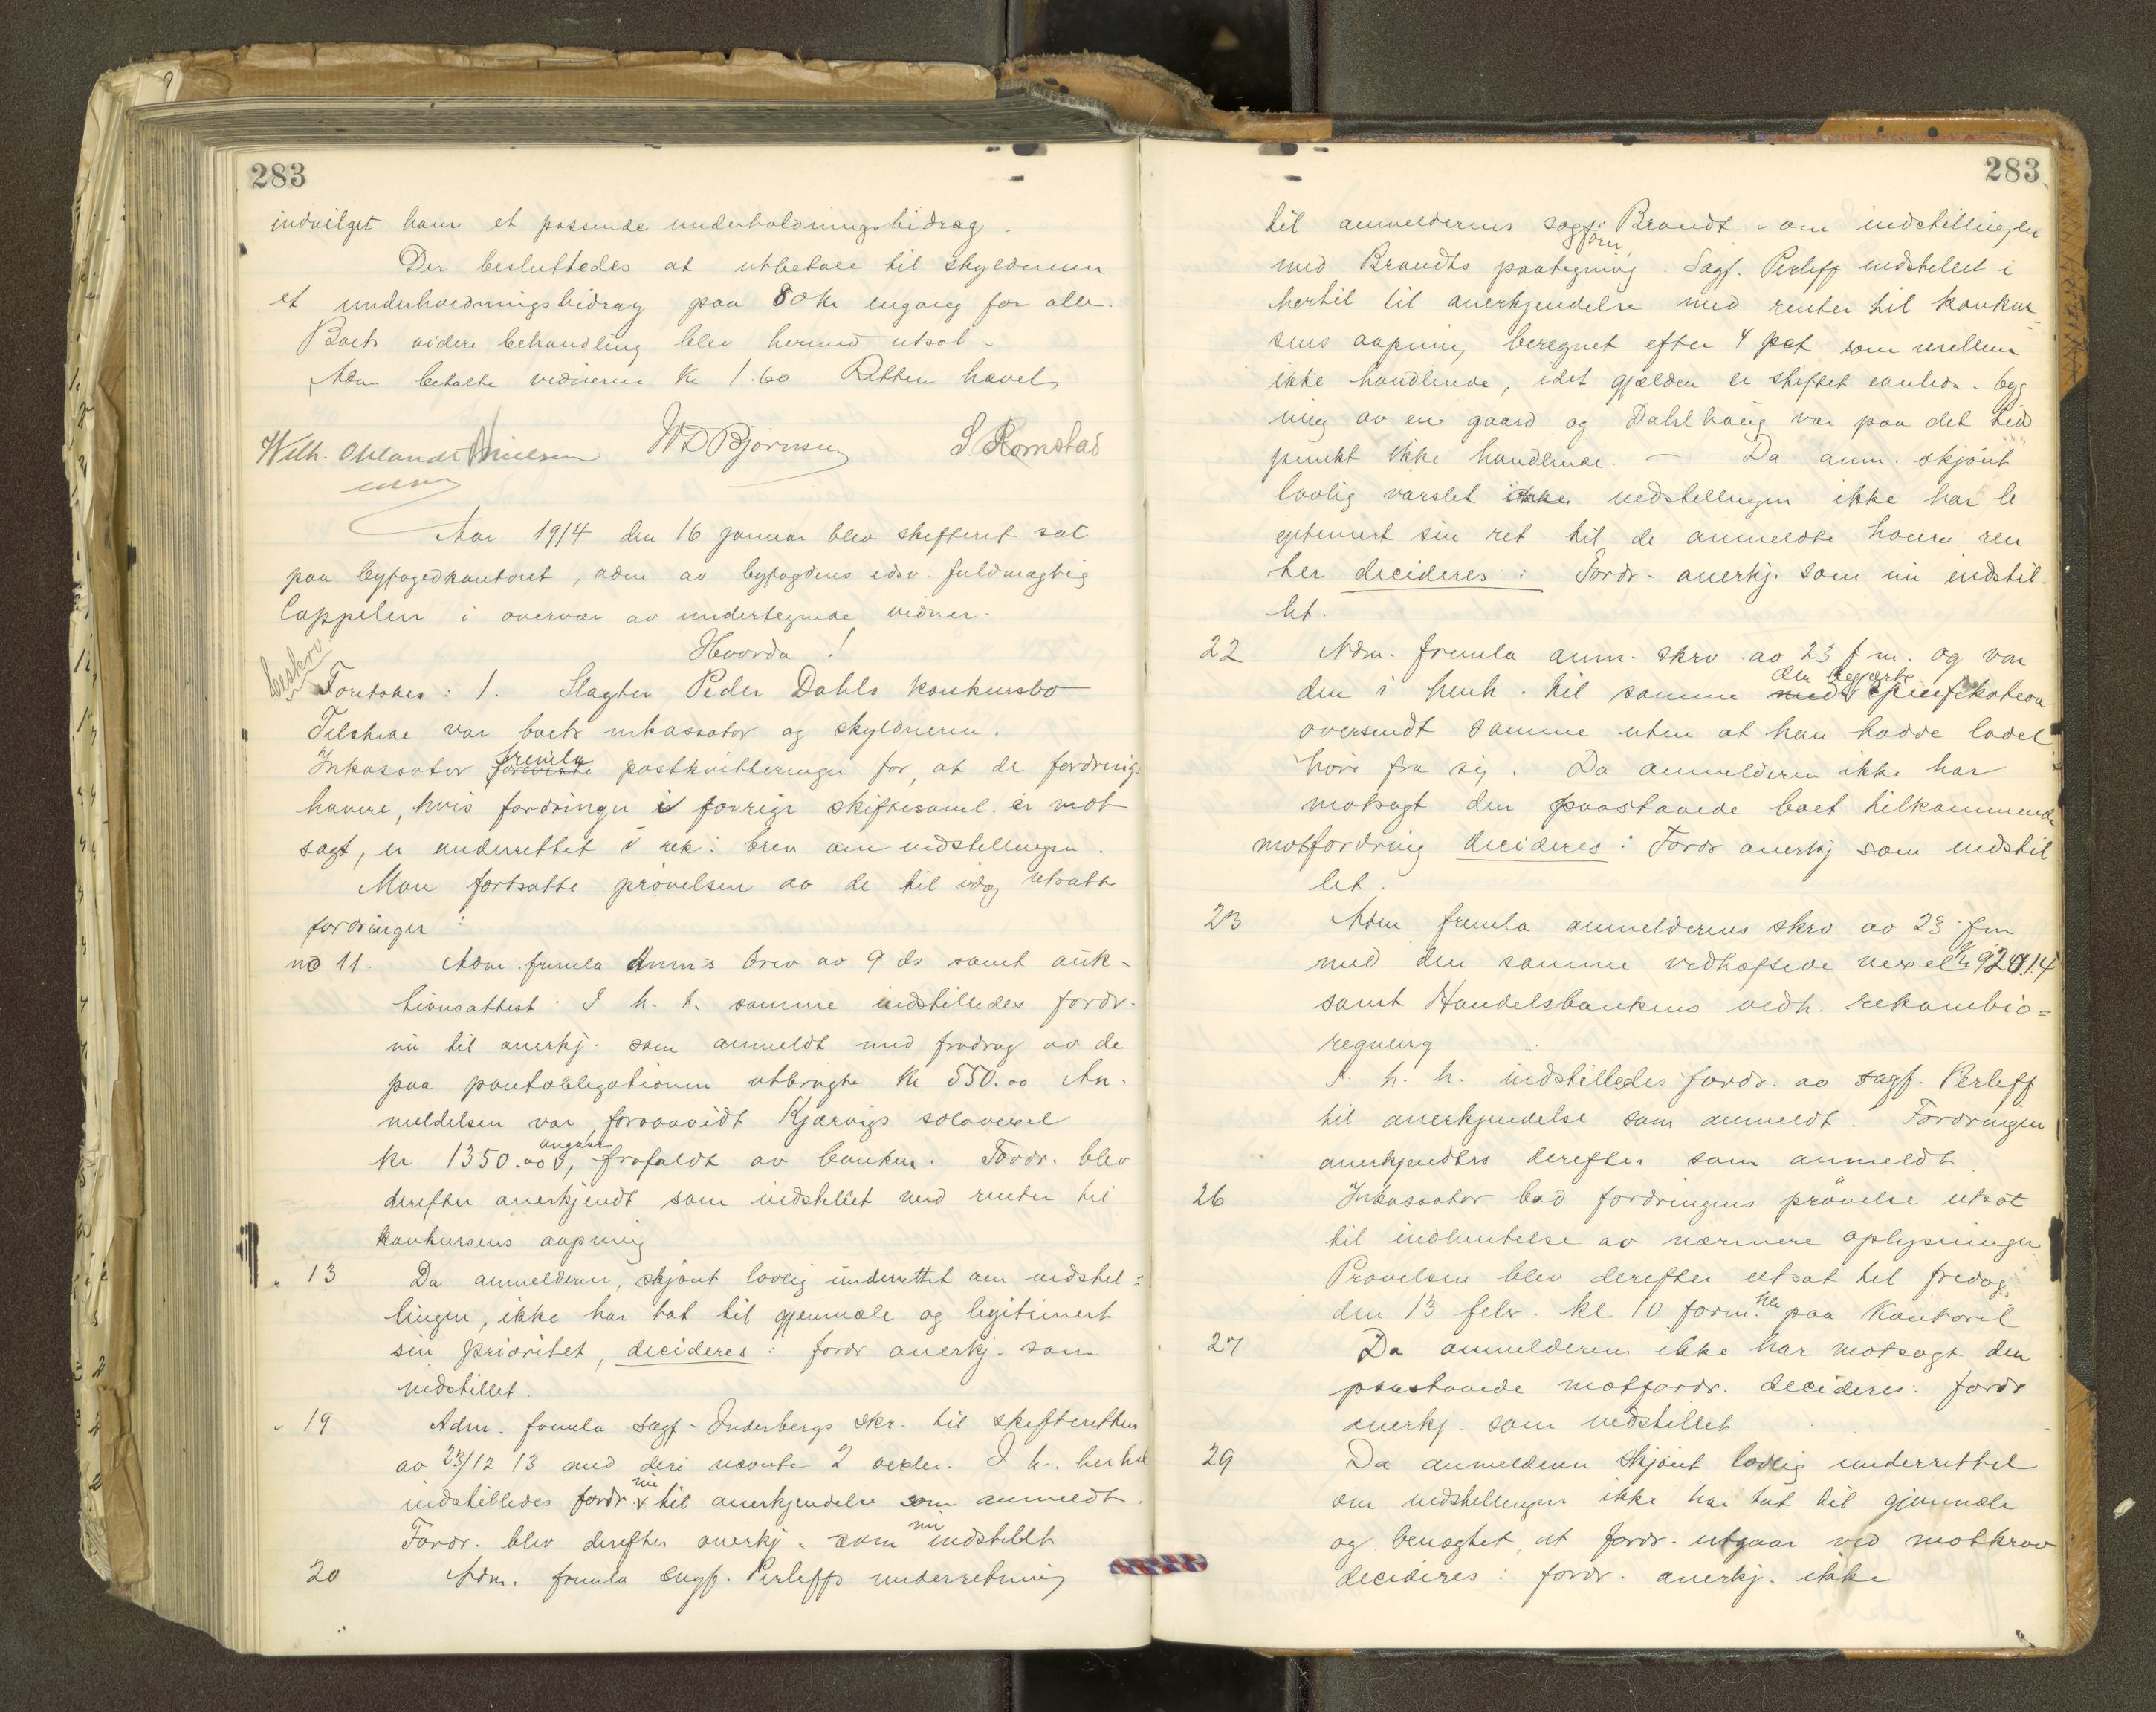 283
indvilget ham et passende underholdningsbidrag.
Der besluttedes at utbetale til skyldneren
et underholdningsbidrag paa 80 kr engang for alle.
Boets videre behandling blev hermed utsat -
Adm betalte vidnerne Kr 1.60 Retten hævet
Wilh. Ohlandt Nielsen WD Bjørnsen S. Romstad
Aar 1914 den 16 januar blev skifteret sat
paa byfogedkontoret, adm av byfogdens edsv. fuldmægtig
Cappelen i overvær av undertegnede vidner.
Hvorda!
beskrv
Foretokes: 1. Slagter Peder Dahls konkursbo
Tilstede var boets inkassator og skyldneren.
fremla
Inkassator foreviste postkvitteringer for, at de fordrings
havere, hvis fordringer i forrige skiftesaml. er mot
sagt, er underrettet i rek. brev om indstillingen.
Man fortsatte prøvelsen av de til idag utsatte
fordringer:
no 11. Adm. fremla anm's brev av 9 ds samt auk-
tionsattest. I h. t. samme indstilledes fordr.
nu til anerkj. som anmeldt med fradrag av de
paa pantobligationen utbragte kr 550.00 An-
meldelsen var, forsaavidt Kjærvigs solavexel
angaar
kr 1350.00, frafaldt av banken. Fordr. blev
derefter anerkjendt som indstillet med renter til
konkursens aapning
" 13 Da anmelderen, skjønt lovlig underrettet om indstil=
lingen, ikke har tat til gjenmæle og legitimert
sin prioritet, decideres: fordr anerkj. som
indstillet.
" 19 Adm. fremla sagf. Inderbergs skr. til skifteretten
av 23/12 13 med deri nævnte 2 vexler. I h. hertil
nu
indstilledes fordr. til anerkjendelse som anmeldt.
nu
Fordr. blev derefter anerkj. som indstillet
20 Adm. fremla sagf. Perleffs underretning
283
til anmelderens sagfører Brandt om indstillingen
med Brandts paategning. Sagf. Perleff indstillet i
hertil til anerkjendelse med renter til konkur=
sens aapning beregnet efter 4 pct som mellem
ikke handlende, idet gjælden er stiftet byg
ning av en gaard og Dahl var paa det tids
punkt ikke handlende. - Da anm. skjønt
lovlig varslet ikke indstillingen ikke har le
gitimert sin ret til de anmeldte høiere ren
ter decideres: Fordr. anerkj. som nu indstil-
let.
22 Adm. fremla anm. skrv. av 23 f m. og var
den begjærte
den i henh. til samme med specifikation
oversendt samme uten at han hadde ladet
høre fra sig. Da anmelderen ikke har
motsagt den paastaaede boet tilkommende
motfordring decideres: Fordr anerkj som indstil
let.
23 Adm fremla anmelderens skrv av 23 fm
med den samme vedhæftede vexel
samt Handelsbankens vedh. rekambio=
regning
I. h. h. indstilledes fordr. av sagf. Perleff
til anerkjendelse som anmeldt. Fordringen
anerkjendtes derefter som anmeldt
26 Inkassator bad fordringens prøvelse utsat
til indhentelse av nærmere oplysninger
Prøvelsen blev derefter utsat til fredag
den 13 febr. kl 10 form. paa Kontoret
27 Da anmelderen ikke har motsagt den
paastaaede motfordr. decideres: fordr
anerkj. som indstillet
29 Da anmelderen skjønt lovlig underrettet
om indstillingen ikke har tat til gjenmæle
og benegtet, at fordr. utgaar ved motkrav
decideres: fordr. anerkj. ikke